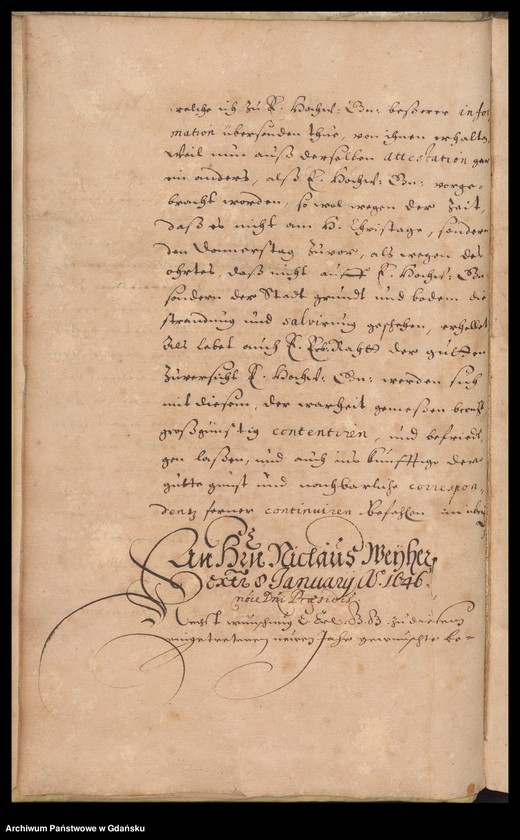 welche ich zu E. Hochw: Gn: beßerer infor
mation übersenden thue, von ihnen erhalten
Weil nun auß derselben Attestation gar
ein anders, alß E. Hochw: Gn: vorge-
bracht worden, so wol wegen der Zeit,
daß es nicht am H. Christage, sondern
den Donnerstag zuvor, als wegen des
ohrtes, daß nicht auff E. Hochw: Gn:
sondern der Stadt grundt und bodem die
strandung und salvirung geschehen, erhellet
Als lebet auch E. Erb. Raht der gutten
Zuversicht E. Hochw: Gn: werden sich
mit diesem, der warheit gemeßen
großgünstig contentiren, und befriedi
gen laßen, und auch ins künfftige der
gutte gunst und nachbarliche correspon-
dentz ferner continuiren Befehlen
An Hrn Niclaus Weyher
8 January Aõ. 1646.
nõie Dni Præsidis
Nechst wünschung zu diesem
eingetretenen neuen Jahr gewünschte
Archiwum Państwowe w Gdańsku